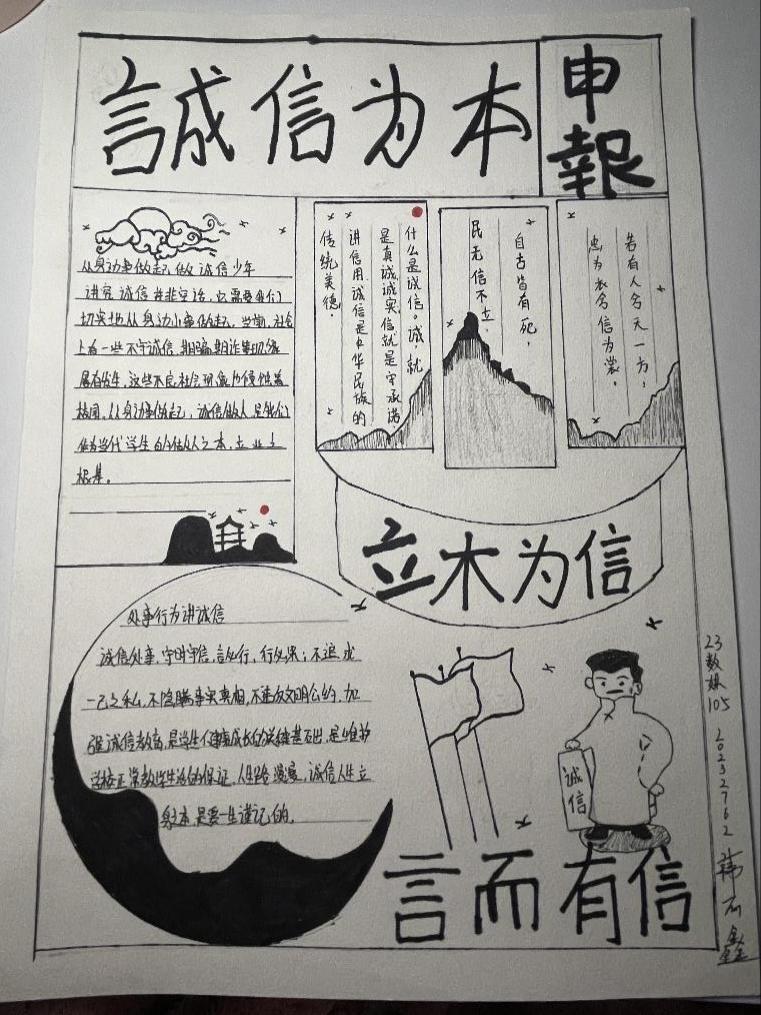 誠信为本
申報
从身边事做起 做诚信少年
讲究诚信并非空话，它需要我们
切实地从身边小事做起。当前，社会
上有一些不守诚信、期骗期诈等现象
屡有发生，这些不良社会现象也侵蚀着
校园。从身边事做起，诚信做人是我们
作为当代学生的做人之本，立业之
根基。
什么是诚信。诚，就
是真诚诚实，信就是守承诺
讲信用诚信是中华民族的
传统美德。
自古皆有死，
民无信不立.
若有人兮天一方，
忠为衣兮信为裳。
立木为信
处事行为讲诚信
诚信处事，守时守信，言必行，行必果；不追求
一己之私，不隐瞒事实真相，不违反文明公约，加
强诚信教育，是学生健康成长的关键基石出，是维护
学校正常教学生活的保证，人生路漫漫，诚信人生立
身之本，是要一生谨记的。
诚信
言而有信
23数媒105 20232762 韩石鑫